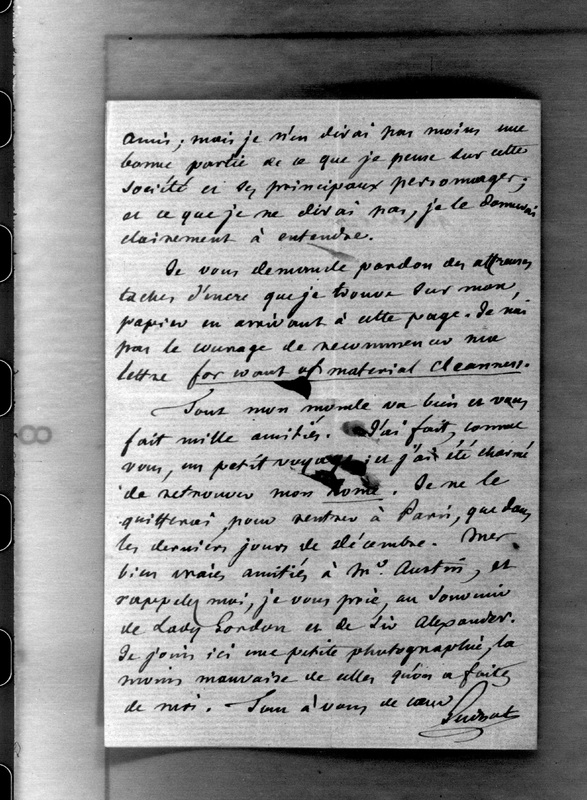 amis; mais je n'en dirai pas moins une
bonne partie de ce que je pense sur cette
société et ses principaux personnages;
et ce que je ne dirai pas, je le donnerai
clairement à entendre.
Je vous demande pardon des affreuses
taches d'encre que je trouve sur mon
papier en arrivant à cette page. Je n'ai
pas le courage de recommencer ma
lettre for want of material cleanness.
Tout mon monde va bien et vous
fait mille amitiés. J'ai fait, comme
vous, un petit voyage et j'ai été charmé
de retrouver mon home. Je ne le
quitterai, pour rentrer à Paris, que dans
les derniers jours de décembre. Mes
bien vraies amitiés à Mr. Austin, et
rappelez moi, je vous prie, au souvenir
de Lady Gordon et de Sir Alexander.
Je joins ici une petite photographie, la
moins mauvaise de celles qu'on a faites
de moi. Tout à vous de cœur
Guizot
8